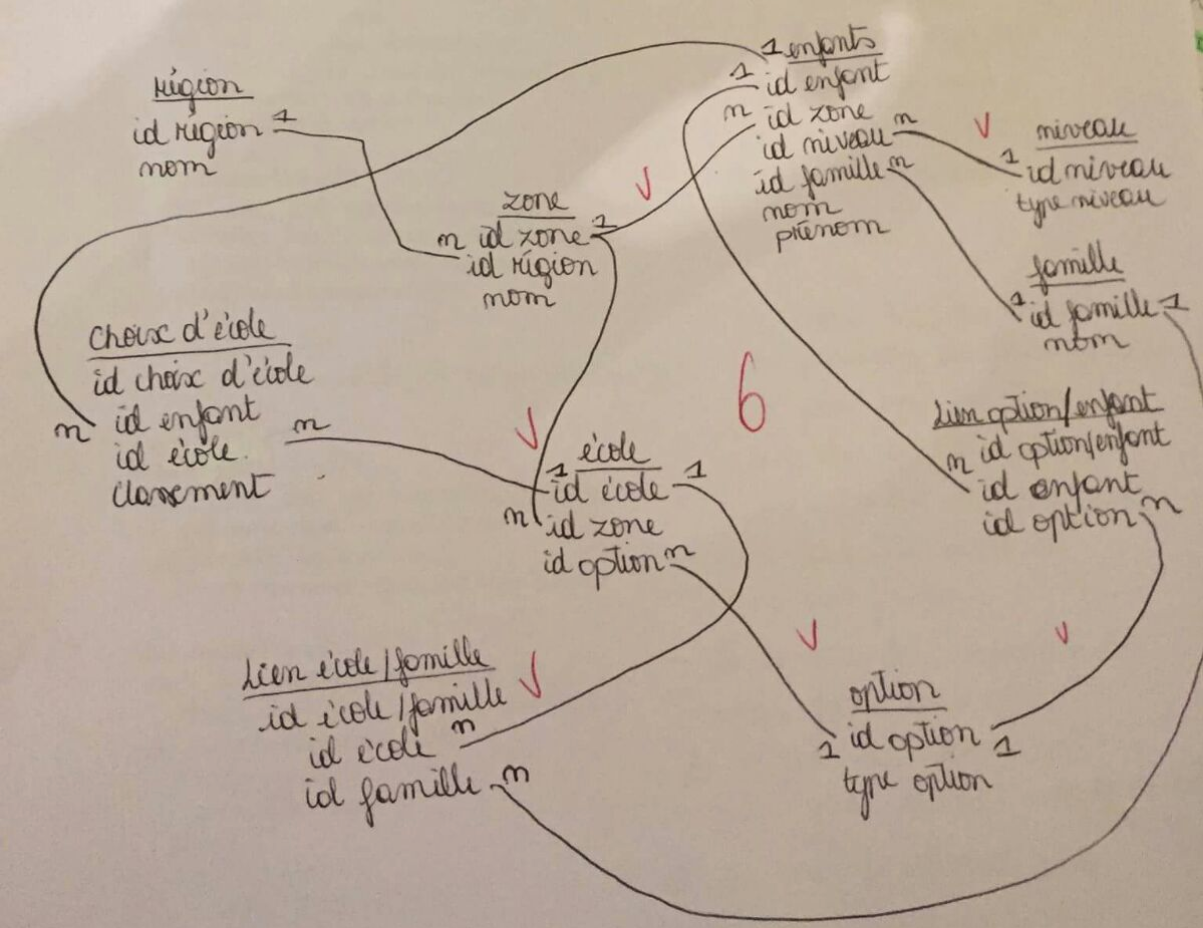 région
id région 1
nom
1 enfants
1 id enfant
n id zone
id niveau n
id famille n
nom
prénom
niveau
1 id niveau
type niveau
zone
n id zone 1
id région
nom
famille
1 id famille 1
nom
choix d'école
id choix d'école
n id enfant
id école n
classement
6
école
1 id école 1
n id zone
id option n
Lien option/enfant
n id option/enfant
id enfant
id option n
Lien école/famille
id école/famille
id école n
id famille n
option
1 id option 1
type option